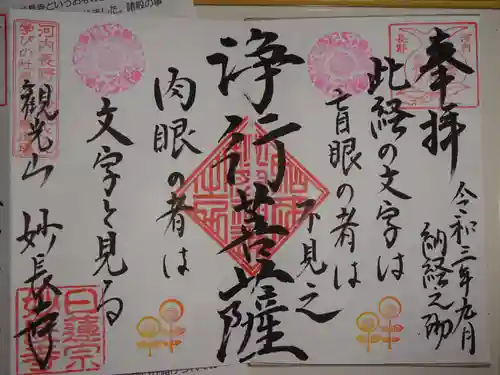 奉拝
令和三年九月
納経之砌
此経の文字は
盲眼の者は
不見之
浄行菩薩
肉眼の者は
文字と見る
観光山 妙長寺
河内
長野
日蓮宗